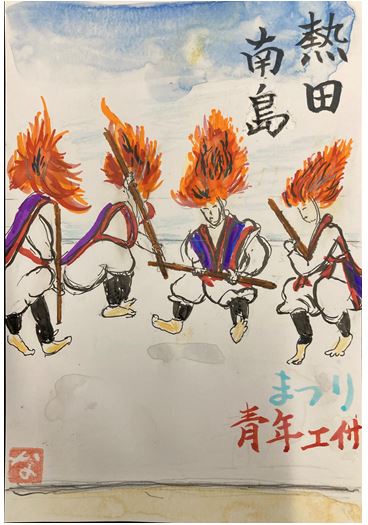 熱田
南島
まつり
青年エイサ
な